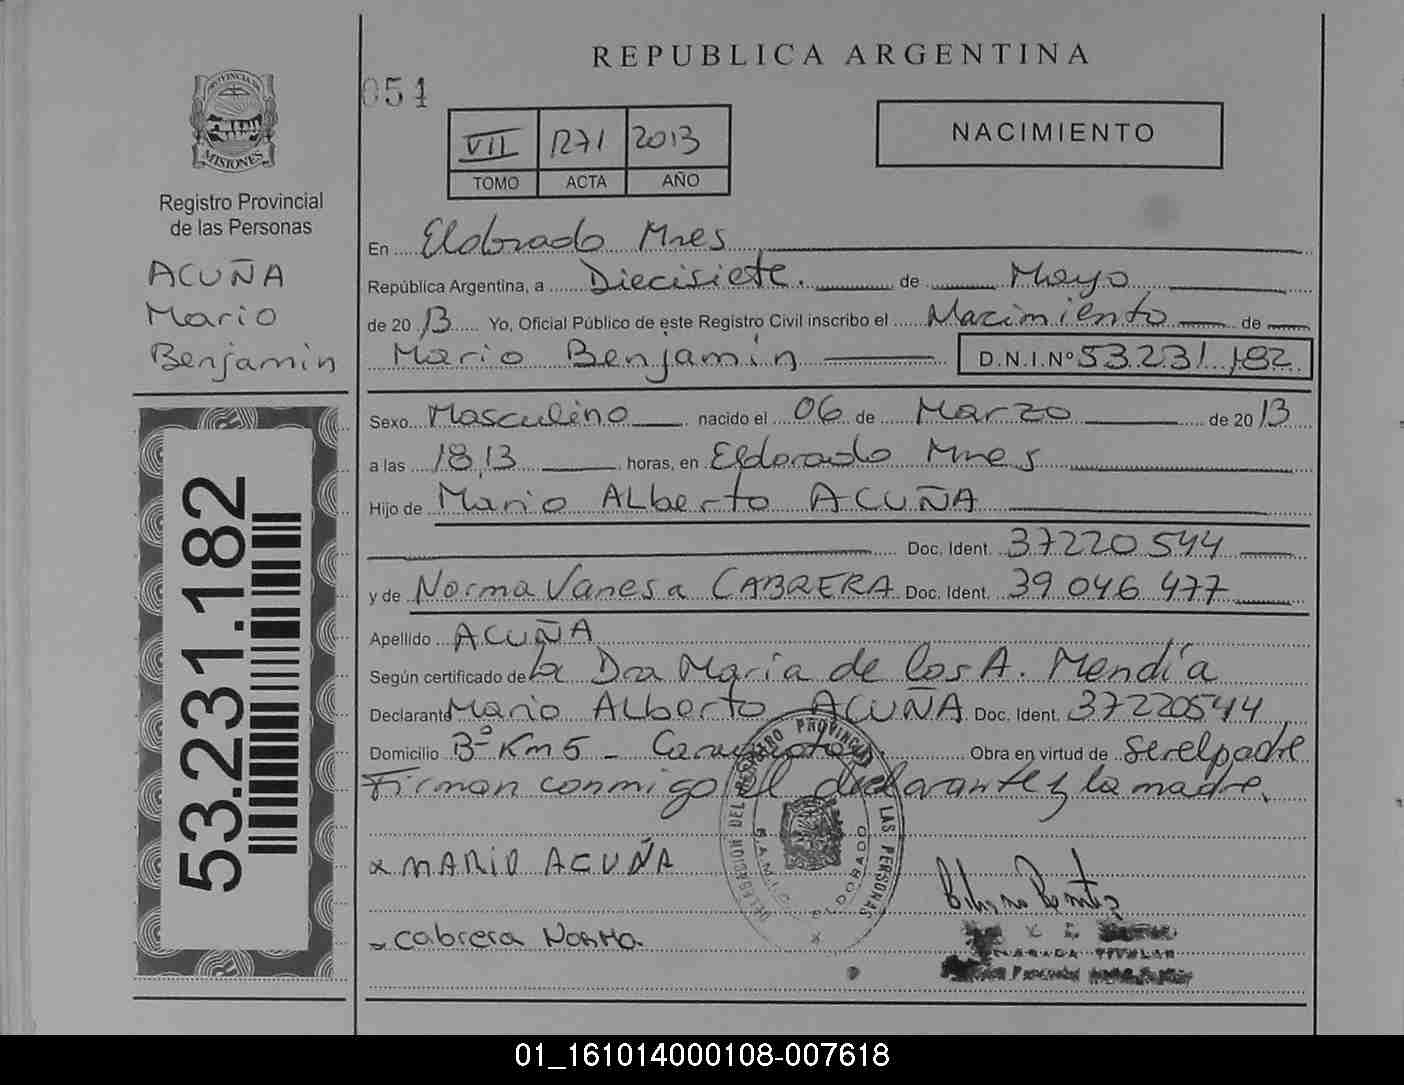 REPUBLICA ARGENTINA
054
PROVINCIA DE
MISIONES
Registro Provincial
de las Personas
ACUÑA
Mario
Benjamin
VII 1271 2013
TOMO ACTA AÑO
NACIMIENTO
En Eldorado Mnes
República Argentina, a Diecisiete de Mayo
de 2013 Yo, Oficial Público de este Registro Civil inscribo el Nacimiento de
Mario Benjamin D.N.I.Nº 53.231.182
Sexo Masculino nacido el 06 de Marzo de 2013
a las 18,13 horas, en Eldorado Mnes
Hijo de Mario ALberto ACUÑA
Doc. Ident. 37220544
y de Norma Vanesa CABRERA Doc. Ident. 39 046 477
Apellido ACUÑA
Según certificado de la Dra Maria de los A. Mendía
Declarante Mario ALberto ACUÑA Doc. Ident. 37220544
Domicilio Bº Km 5 - Obra en virtud de ser el padre
Firman conmigo el declarante y la madre.
53.231.182
x MARIO ACUÑA
x Cabrera Norma
DELEGACION DEL REGISTRO PROVINCIAL LAS PERSONAS
ELDORADO
TITULAR
01_161014000108-007618